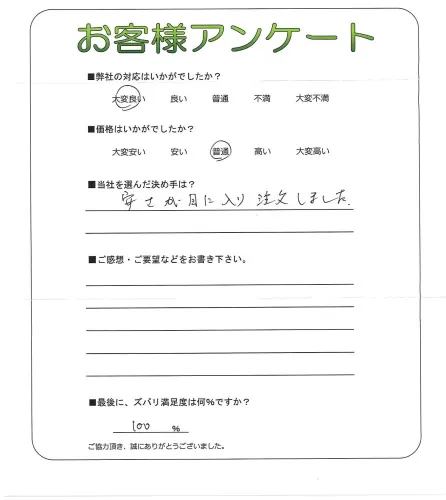 お客様アンケート
■弊社の対応はいかがでしたか？
大変良い 良い 普通 不満 大変不満
■価格はいかがでしたか？
大変安い 安い 普通 高い 大変高い
■当社を選んだ決め手は？
安さが目に入り注文しました.
■ご感想・ご要望などをお書き下さい。
■最後に、ズバリ満足度は何%ですか？
100 %
ご協力頂き、誠にありがとうございました。